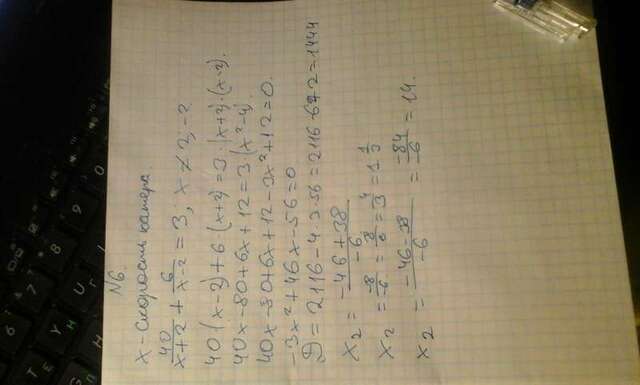 N6
x - скорость катера
40/(x+2) + 6/(x-2) = 3, x ≠ 2; -2
40(x-2)+6(x+2) = 3·(x+2)·(x-2).
40x-80+6x+12=3·(x²-4).
40x-80+6x+12-3x²+12=0.
-3x²+46x-56=0
D = 2116-4·3·56=2116-672=1444
x₂ = (-46+38)/(-6)
x₂ = (-8)/(-6) = 8/6 = 4/3 = 1 1/3
x₂ = (-46-38)/(-6) = (-84)/(-6) = 14.